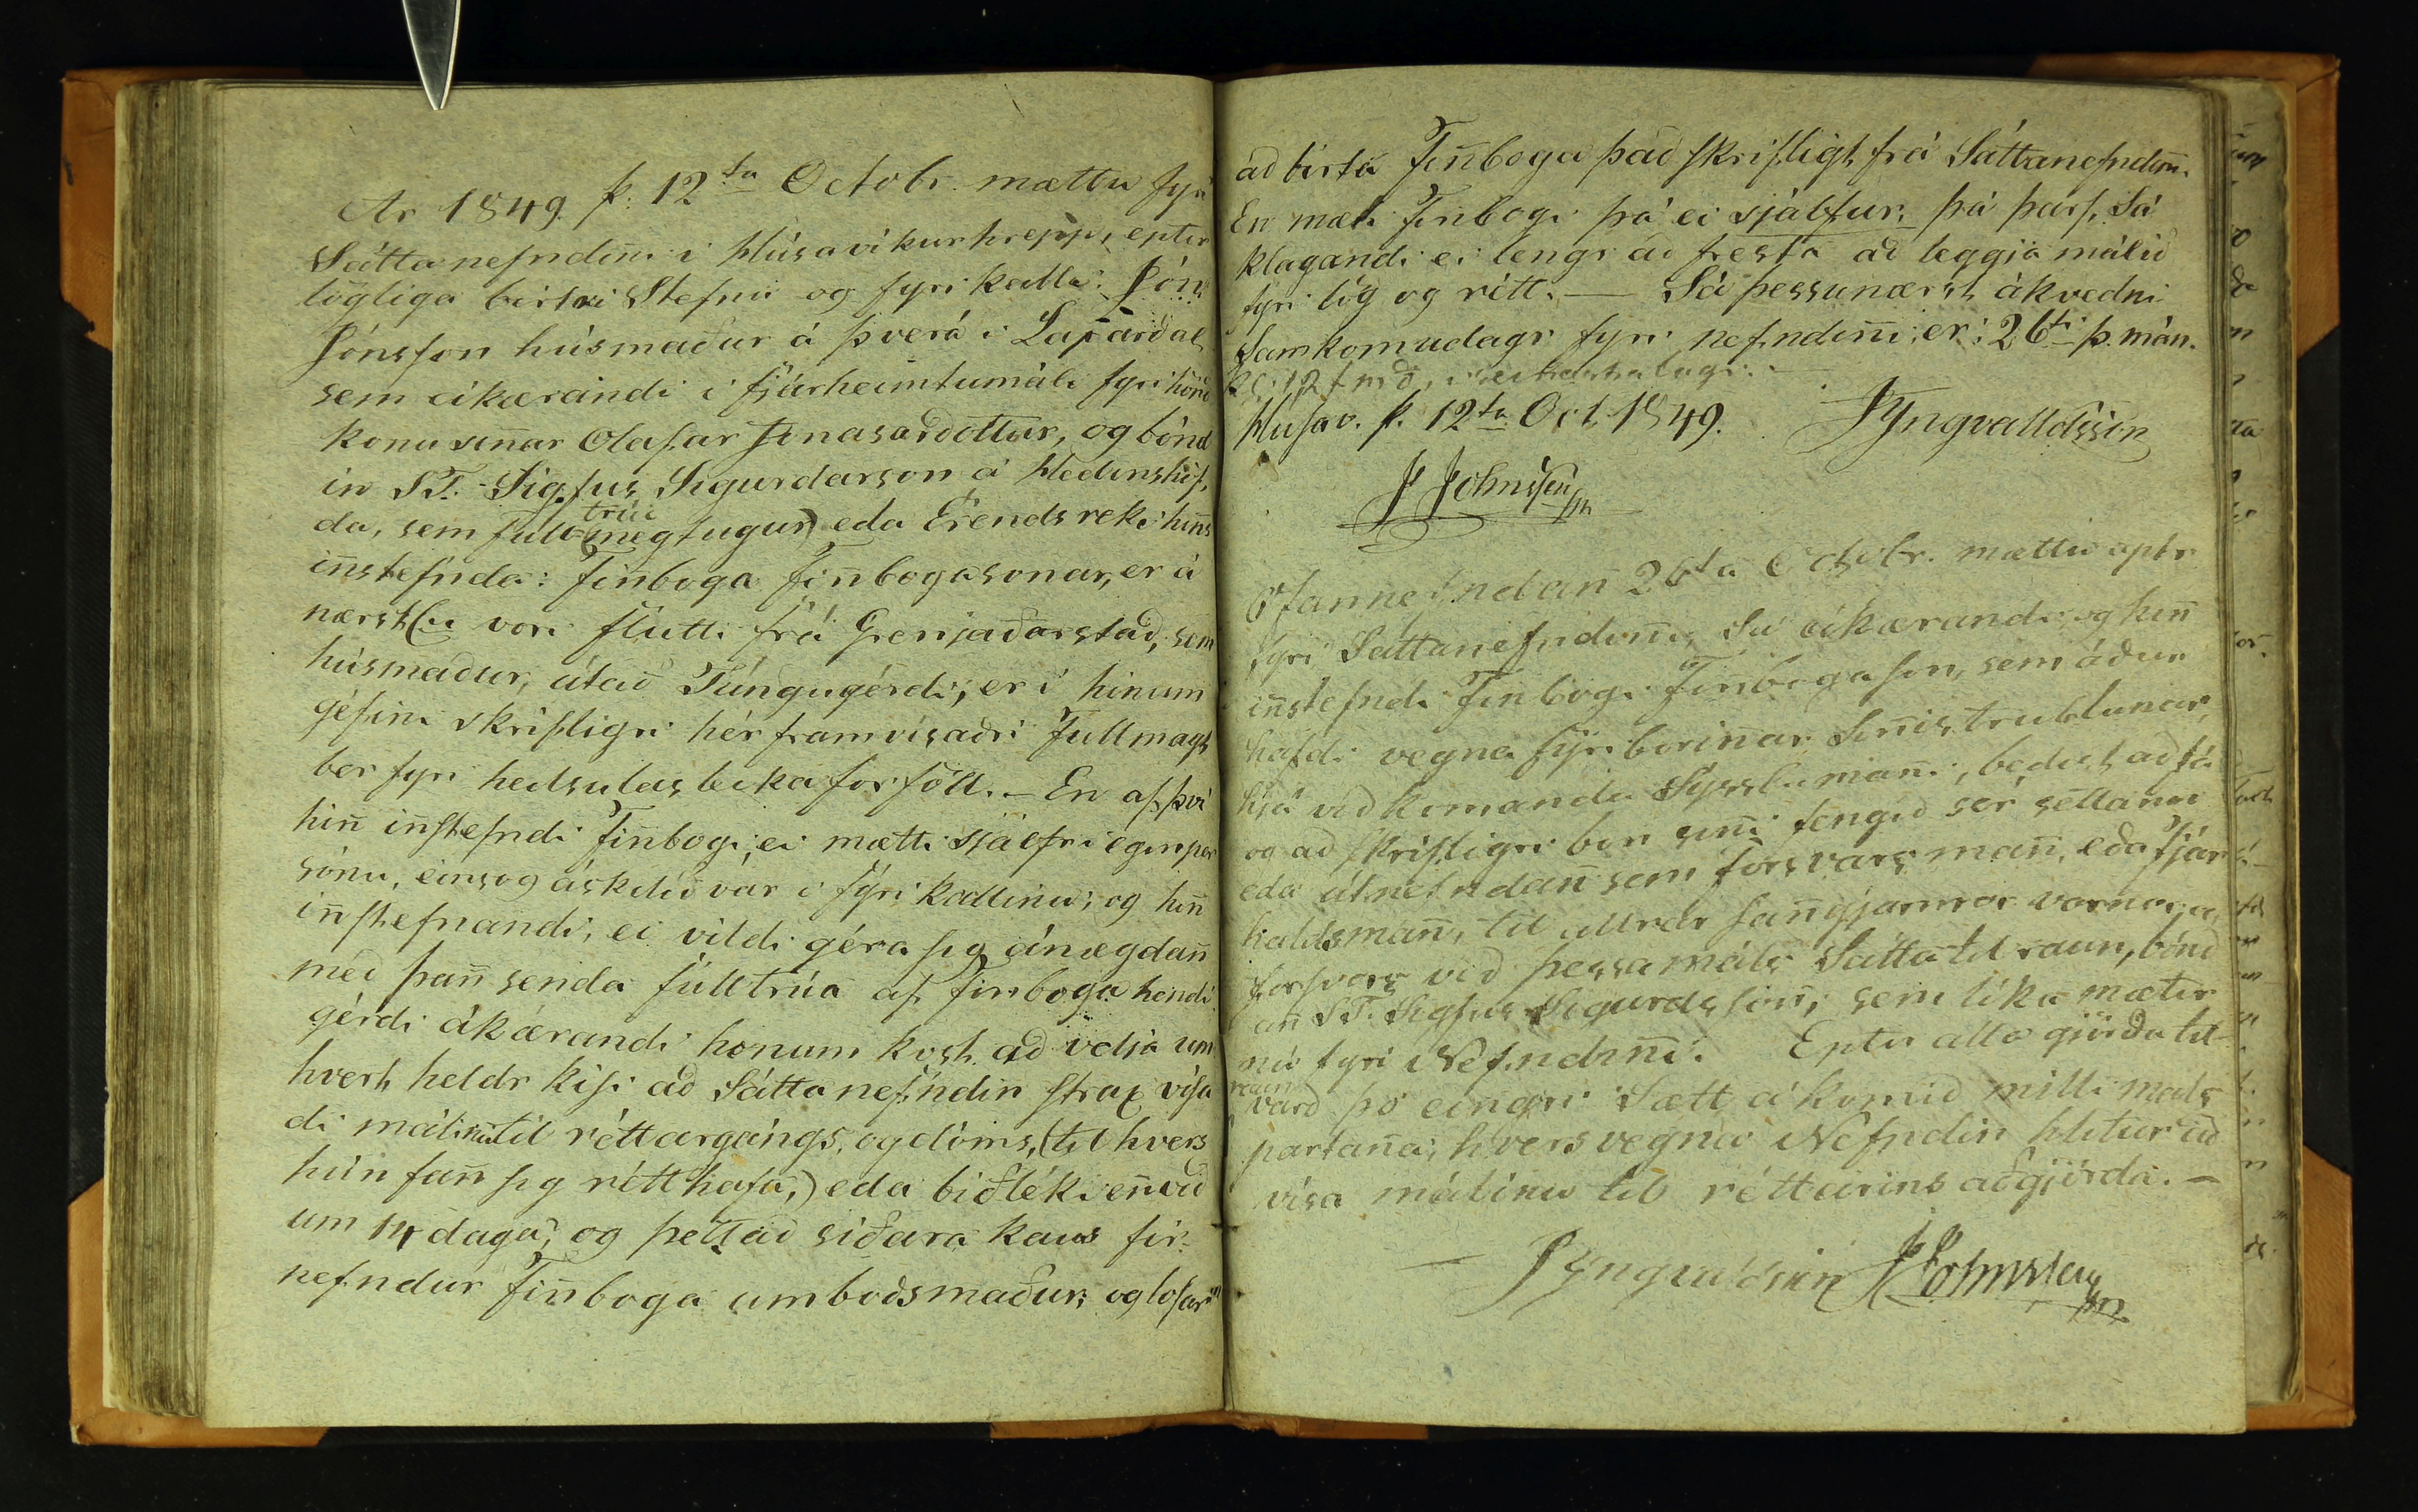 Ar 1849. þ. 12ta Octobr. mættu fyri
Sáttanefndiñi i Húsavíkurhrepp, eptir
lögliga birtri Stefnu og fyrikalli: Jón
Jónsson húsmaður á þverá i Laxardal
sem ákærandi i fjárheimtumáli fyri hönd
konu siñar Olafar Jonasardottur, og bónd
in ST. Sigfus Sigurdarson á Hedinshöf,
da, sem full trúi (megtugur) eda Erendsreki hiñs
iñstefnda: Finboga Fiñbogasonar, er á
nærstl: vori flutti frá Grenjaðarstað, sem
húsmadur, útað Túngugérdi; er i hinum
géfini skrifligri hér framvísaðri Fullmagt
ber fyri heilsulasleika forföll. – En af því
hiñ iñstefndi Fiñbogi, ei mætti sjálfri eginper
sónu, einsog áskilið var i fyrikallinu; og hiñ
iñstefnandi, ei vildi géra sig ánægdañ
með þañ senda fulltrúa af Finboga hendi
gérdi ákærandi honum kost að velja um
hvert heldr kisi að Sáttanefndin strax visa
di málinu til réttargángs, og dóms, (til hvers
hún fañ sig rétt hafa,) eda biðléki eñ við
um 14 daga; og þettað siðara kaus fir-
nefndur Fiñboga umboðsmaður; og lofar
að birta Fiñboga það skrifligt frá Sáttanefndiñi.
En mæti Finbogi þá ei sjálfur, þá þarf, Sá
klagandi ei lengr að fresta að leggja málið
fyri lög og rétt. — Sá þessunærst ákvedni
Samkomudagr fyri nefndiñi; er: 26ti þ. mán.
kl: 12 f mð,
Húsav. þ. 12ta Oct. 1849. JYngvalldssön
J Johnsen
Ofannefndañ 26ta Octobr. mættu aptr
fyri Sáttanefndiñi, Sá ákærandi, og hiñ
iñstefndi Finbogi Finbogason, sem áður
hafdi vegna fyriboriñar Siñistrublunar,
hjá viðkomandi Sysslumañi, bedist að fá
og að skrifligri bón siñi fengið sér settann
eda útnefndañ sem forsvarsmañ, eða fjár
haldsmañ, til allrar sañgjarnrar varnar, a
forsvars við þessa máls Sáttatilraun, bónd
añ ST. Sigfus Sigurdsson; sem líka mætir
nú fyri Nefndiñi. Eptir alla gjörða til-
raun varð þó eingri Sætt ákomið milli máls
partaña; hvers vegna Nefndin hlitur að
visa málinu til réttarins aðgjörda. –
JYngvaldssön J Johnsen